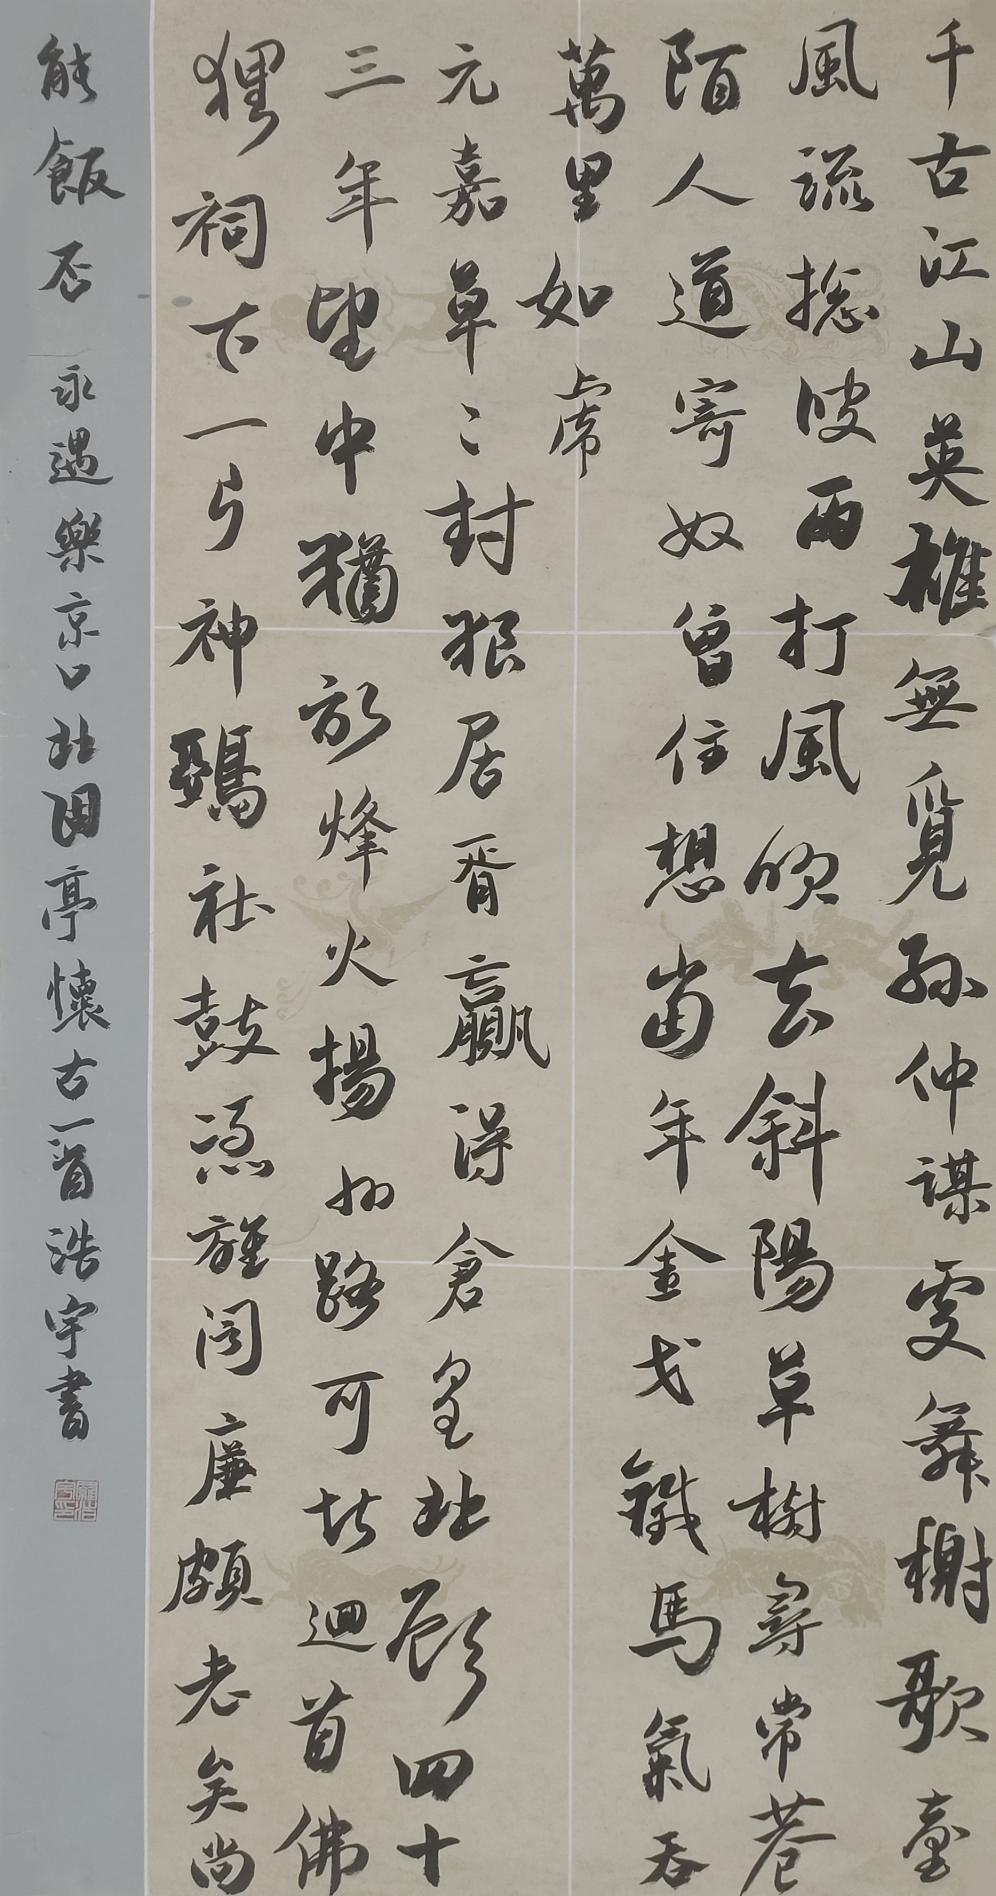 千古江山英雄無覓孫仲謀處舞榭歌臺
風流總被雨打風吹去斜陽草樹尋常巷
陌人道寄奴曾住想當年金戈鐵馬氣吞
萬里如虎
元嘉草〻封狼居胥贏得倉皇北顧四十
三年望中猶記烽火揚州路可堪迴首佛
狸祠下一片神鴉社鼓憑誰問廉頗老矣尚
能飯否 永遇樂京口北固亭懷古一首浩宇書